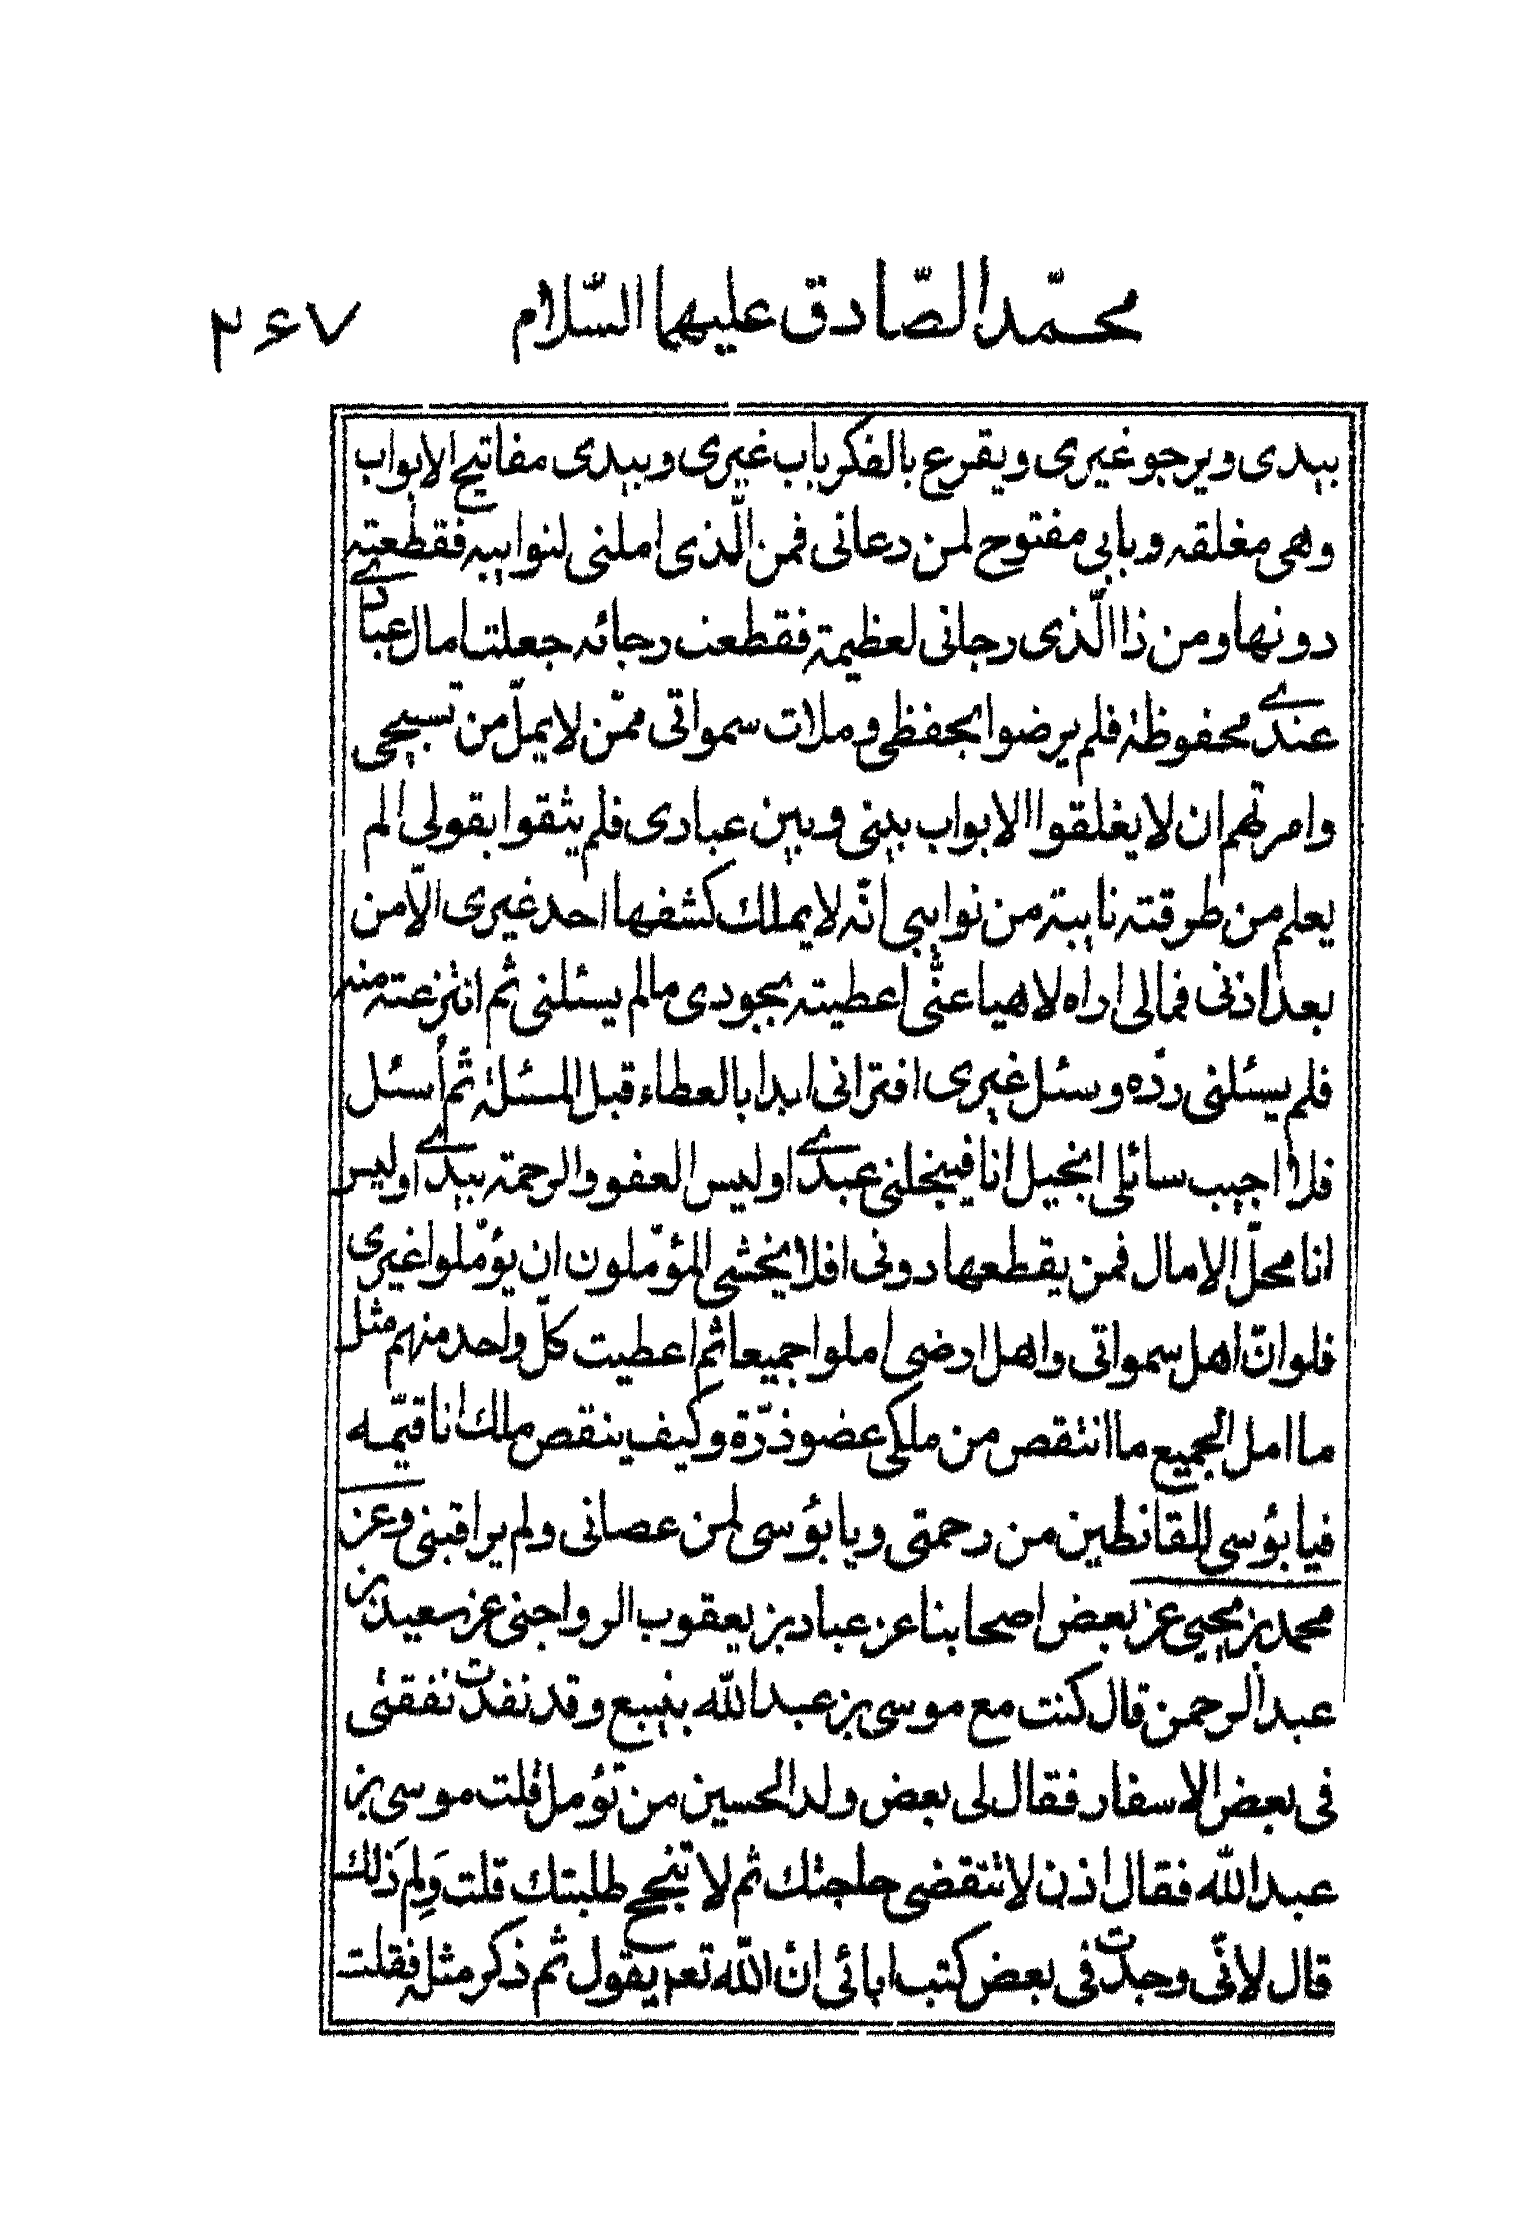 محمّد الصّادق عليهما السّلام ٢۶٧
بيدى ويرجو غيرى ويقرع بالفكر باب غيرى وبيدى مفاتيح الابواب
وهى مغلقه وبابى مفتوح لمن دعانى فمن الّذى املنى لنوايبه فقطعته
دونها ومن ذا الّذى رجانى لعظيمة فقطعت رجائه جعلت امال عبادى
عندى محفوظة فلم يرضوا بحفظى وملات سمواتى ممّن لا يملّ من تسبيحى
وامرتهم ان لا يغلقوا الابواب بينى وبين عبادى فلم يثقوا بقولى الم
يعلم من طرقته نايبة من نوايبى انّه لا يملك كشفها احد غيرى الّا من
بعد اذنى فمالى اراه لاهيا عنّى اعطيته بجودى مالم يسئلنى ثم انتزعته منه
فلم يسئلنى ردّه وسئل غيرى افترانى ابدا بالعطاء قبل المسئلة ثم أسئل
فلا اجيب سائلى ابخيل انا فيبخلنى عبدى اوليس العفو والرحمة بيدى اوليس
انا محلّ الامال فمن يقطعها دونى افلا يخشى المؤمّلون ان يؤمّلوا غيرى
فلو انّ اهل سمواتى واهل ارضى املوا جميعا ثم اعطيت كلّ واحد منهم مثل
ما امل الجميع ما انتقص من ملكى عضو ذرّة وكيف ينقص ملك انا قيّمه
فيا بؤسى للقانطين من رحمتى ويا بؤسى لمن عصانى ولم يراقبنى وعن
محمد بن يحيى عن بعض اصحابنا عن عباد بن يعقوب الرواجنى عن سعيد بن
عبد الرحمن قال كنت مع موسى بن عبد الله بينبع وقد نفدت نفقتى
فى بعض الاسفار فقال لى بعض ولد الحسين من تؤمل قلت موسى بن
عبد الله فقال اذن لا تتقضى حاجتك ثم لا تنجح طلبتك قلت وَلِم ذَلك
قال لانّى وجدت فى بعض كتب ابائى انّ الله تعر يقول ثم ذكر مثله فقلت